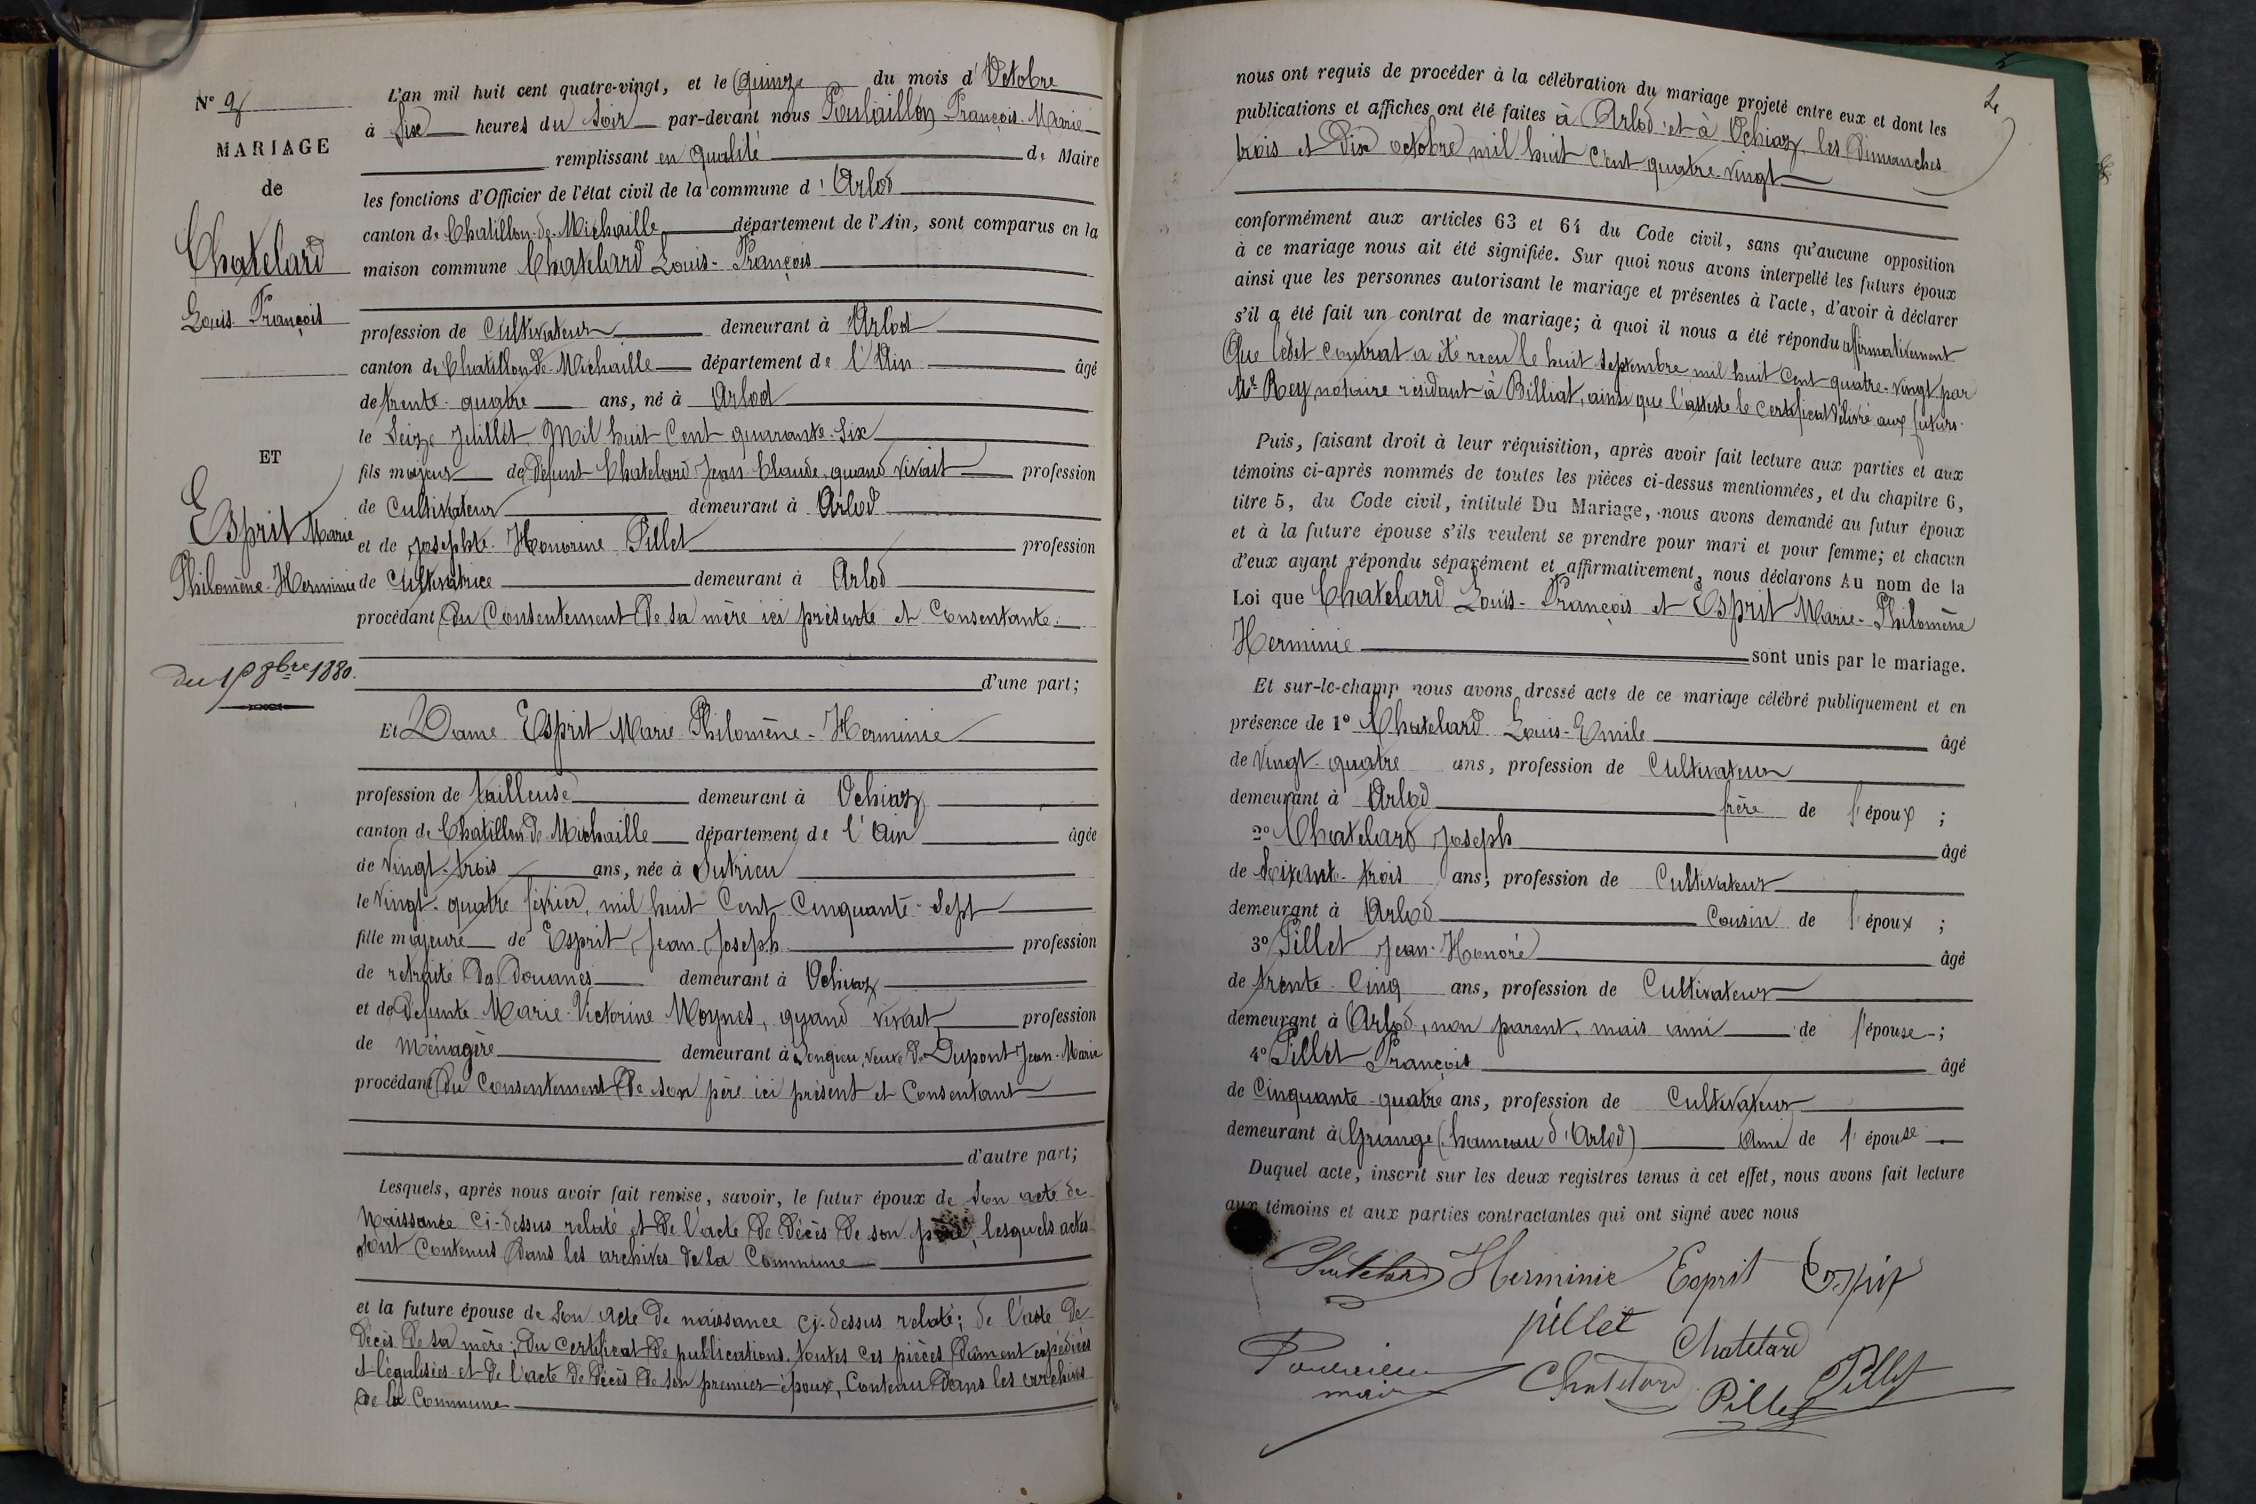 N° 9
MARIAGE
de
Chatelard
Louis François
ET
Esprit Marie
Philomène-Herminie
du 15 8bre 1880.
L'an mil huit cent quatre-vingt, et le Quinze du mois d'Octobre
à Six heures du Soir par-devant nous François-Marie
remplissant en qualité de Maire
les fonctions d'Officier de l'état civil de la commune d'Arlod
canton de Chatillon-de-Michaille département de l'Ain, sont comparus en la
maison commune Chatelard Louis-François
profession de Cultivateur demeurant à Arlod
canton de Chatillon de Michaille département de l'Ain âgé
de trente-quatre ans, né à Arlod
le Seize Juillet Mil huit Cent quarante-Six
fils majeur de Défunt Chatelard Jean Claude, quand vivait profession
de Cultivateur demeurant à Arlod
et de Josephte-Honorine Pillet profession
de Cultivatrice demeurant à Arlod
procédant du Consentement de sa mère ici présente et Consentante.
d'une part;
Et Dame Esprit Marie Philomène-Herminie
profession de tailleuse demeurant à Ochiaz
canton de Chatillon de Michaille département de l'Ain âgée
de Vingt-trois ans, née à Sutrieu
le Vingt-quatre février, mil huit Cent Cinquante-Sept
fille majeure de Esprit, Jean Joseph profession
de retraité des Douanes demeurant à Ochiaz
et de Défunte Marie-Victorine Moynet, quand vivait profession
de Ménagère demeurant à Songieu, veuve de Dupont Jean-Marie
procédant du Consentement de son père ici présent et Consentant
d'autre part;
Lesquels, après nous avoir fait remise, savoir, le futur époux de Son acte de
Naissance ci-dessus relaté et de l'acte de Décès de son père, lesquels actes
sont Contenus dans les archives de la Commune
et la future épouse de Son acte de naissance ci-dessus relaté; de l'acte de
Décès de sa mère; du Certificat de publications. toutes ces pièces dûment expédiées
et légalisées et de l'acte de Décès de son premier époux, Contenu dans les archives
de la Commune
nous ont requis de procéder à la célébration du mariage projeté entre eux et dont les
publications et affiches ont été faites à Arlod et à Ochiaz les Dimanches
trois et Dix octobre mil huit Cent quatre-vingt
conformément aux articles 63 et 64 du Code civil, sans qu'aucune opposition
à ce mariage nous ait été signifiée. Sur quoi nous avons interpellé les futurs époux
ainsi que les personnes autorisant le mariage et présentes à l'acte, d'avoir à déclarer
s'il a été fait un contrat de mariage; à quoi il nous a été répondu affirmativement
Que ledit Contrat a été reçu le huit Septembre mil huit Cent quatre-vingt par
Me Rey notaire résidant à Billiat, ainsi que l'atteste le Certificat délivré aux futurs.
Puis, faisant droit à leur réquisition, après avoir fait lecture aux parties et aux
témoins ci-après nommés de toutes les pièces ci-dessus mentionnées, et du chapitre 6,
titre 5, du Code civil, intitulé Du Mariage, nous avons demandé au futur époux
et à la future épouse s'ils veulent se prendre pour mari et pour femme; et chacun
d'eux ayant répondu séparément et affirmativement, nous déclarons Au nom de la
Loi que Chatelard Louis-François et Esprit Marie-Philomène
Herminie sont unis par le mariage.
Et sur-le-champ nous avons dressé acte de ce mariage célébré publiquement et en
présence de 1° Chatelard Louis-Emile âgé
de Vingt-quatre ans, profession de Cultivateur
demeurant à Arlod frère de l'époux ;
2° Chatelard Joseph âgé
de Soixante-trois ans, profession de Cultivateur
demeurant à Arlod Cousin de l'époux ;
3° Pillet Jean-Honoré âgé
de trente-Cinq ans, profession de Cultivateur
demeurant à Arlod, non parent, mais ami de l'épouse ;
4° Pillet François âgé
de Cinquante-quatre ans, profession de Cultivateur
demeurant à Grange (hameau d'Arlod) Ami de l'épouse
Duquel acte, inscrit sur les deux registres tenus à cet effet, nous avons fait lecture
aux témoins et aux parties contractantes qui ont signé avec nous
Chatelard Herminie Esprit Esprit
pillet
Chatelard
maire
Chatelard Pillet Pillet